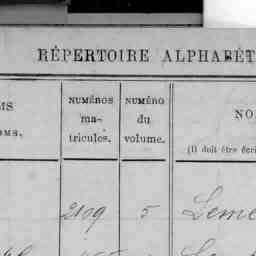 RÉPERTOIRE ALPHABÉT
MS
OMS.
NUMÉROS
ma-
tricules.
NUMÉRO
du
volume.
NO
(Il doit être écri
2109 5 Leme